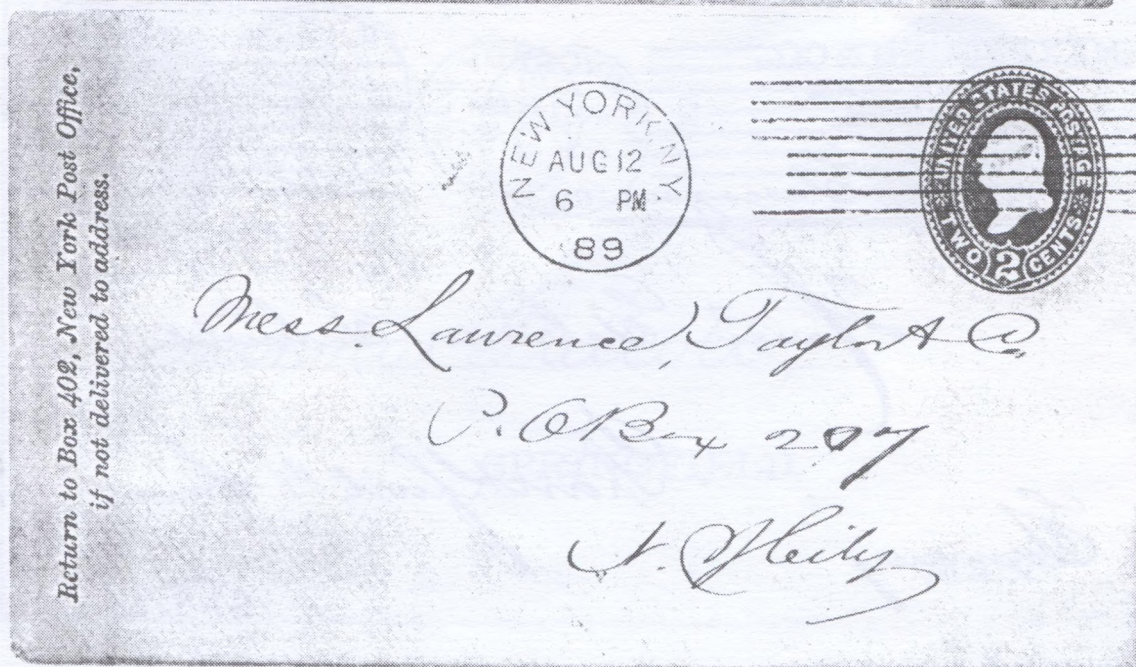 Return to Box 402, New York Post Office,
if not delivered to address.
NEW YORK, N.Y.
AUG 12
6 PM
89
UNITED STATES POSTAGE
TWO 2 CENTS
Mess. Lawrence, Taylor & Co.
P. O Box 207
N. Y City